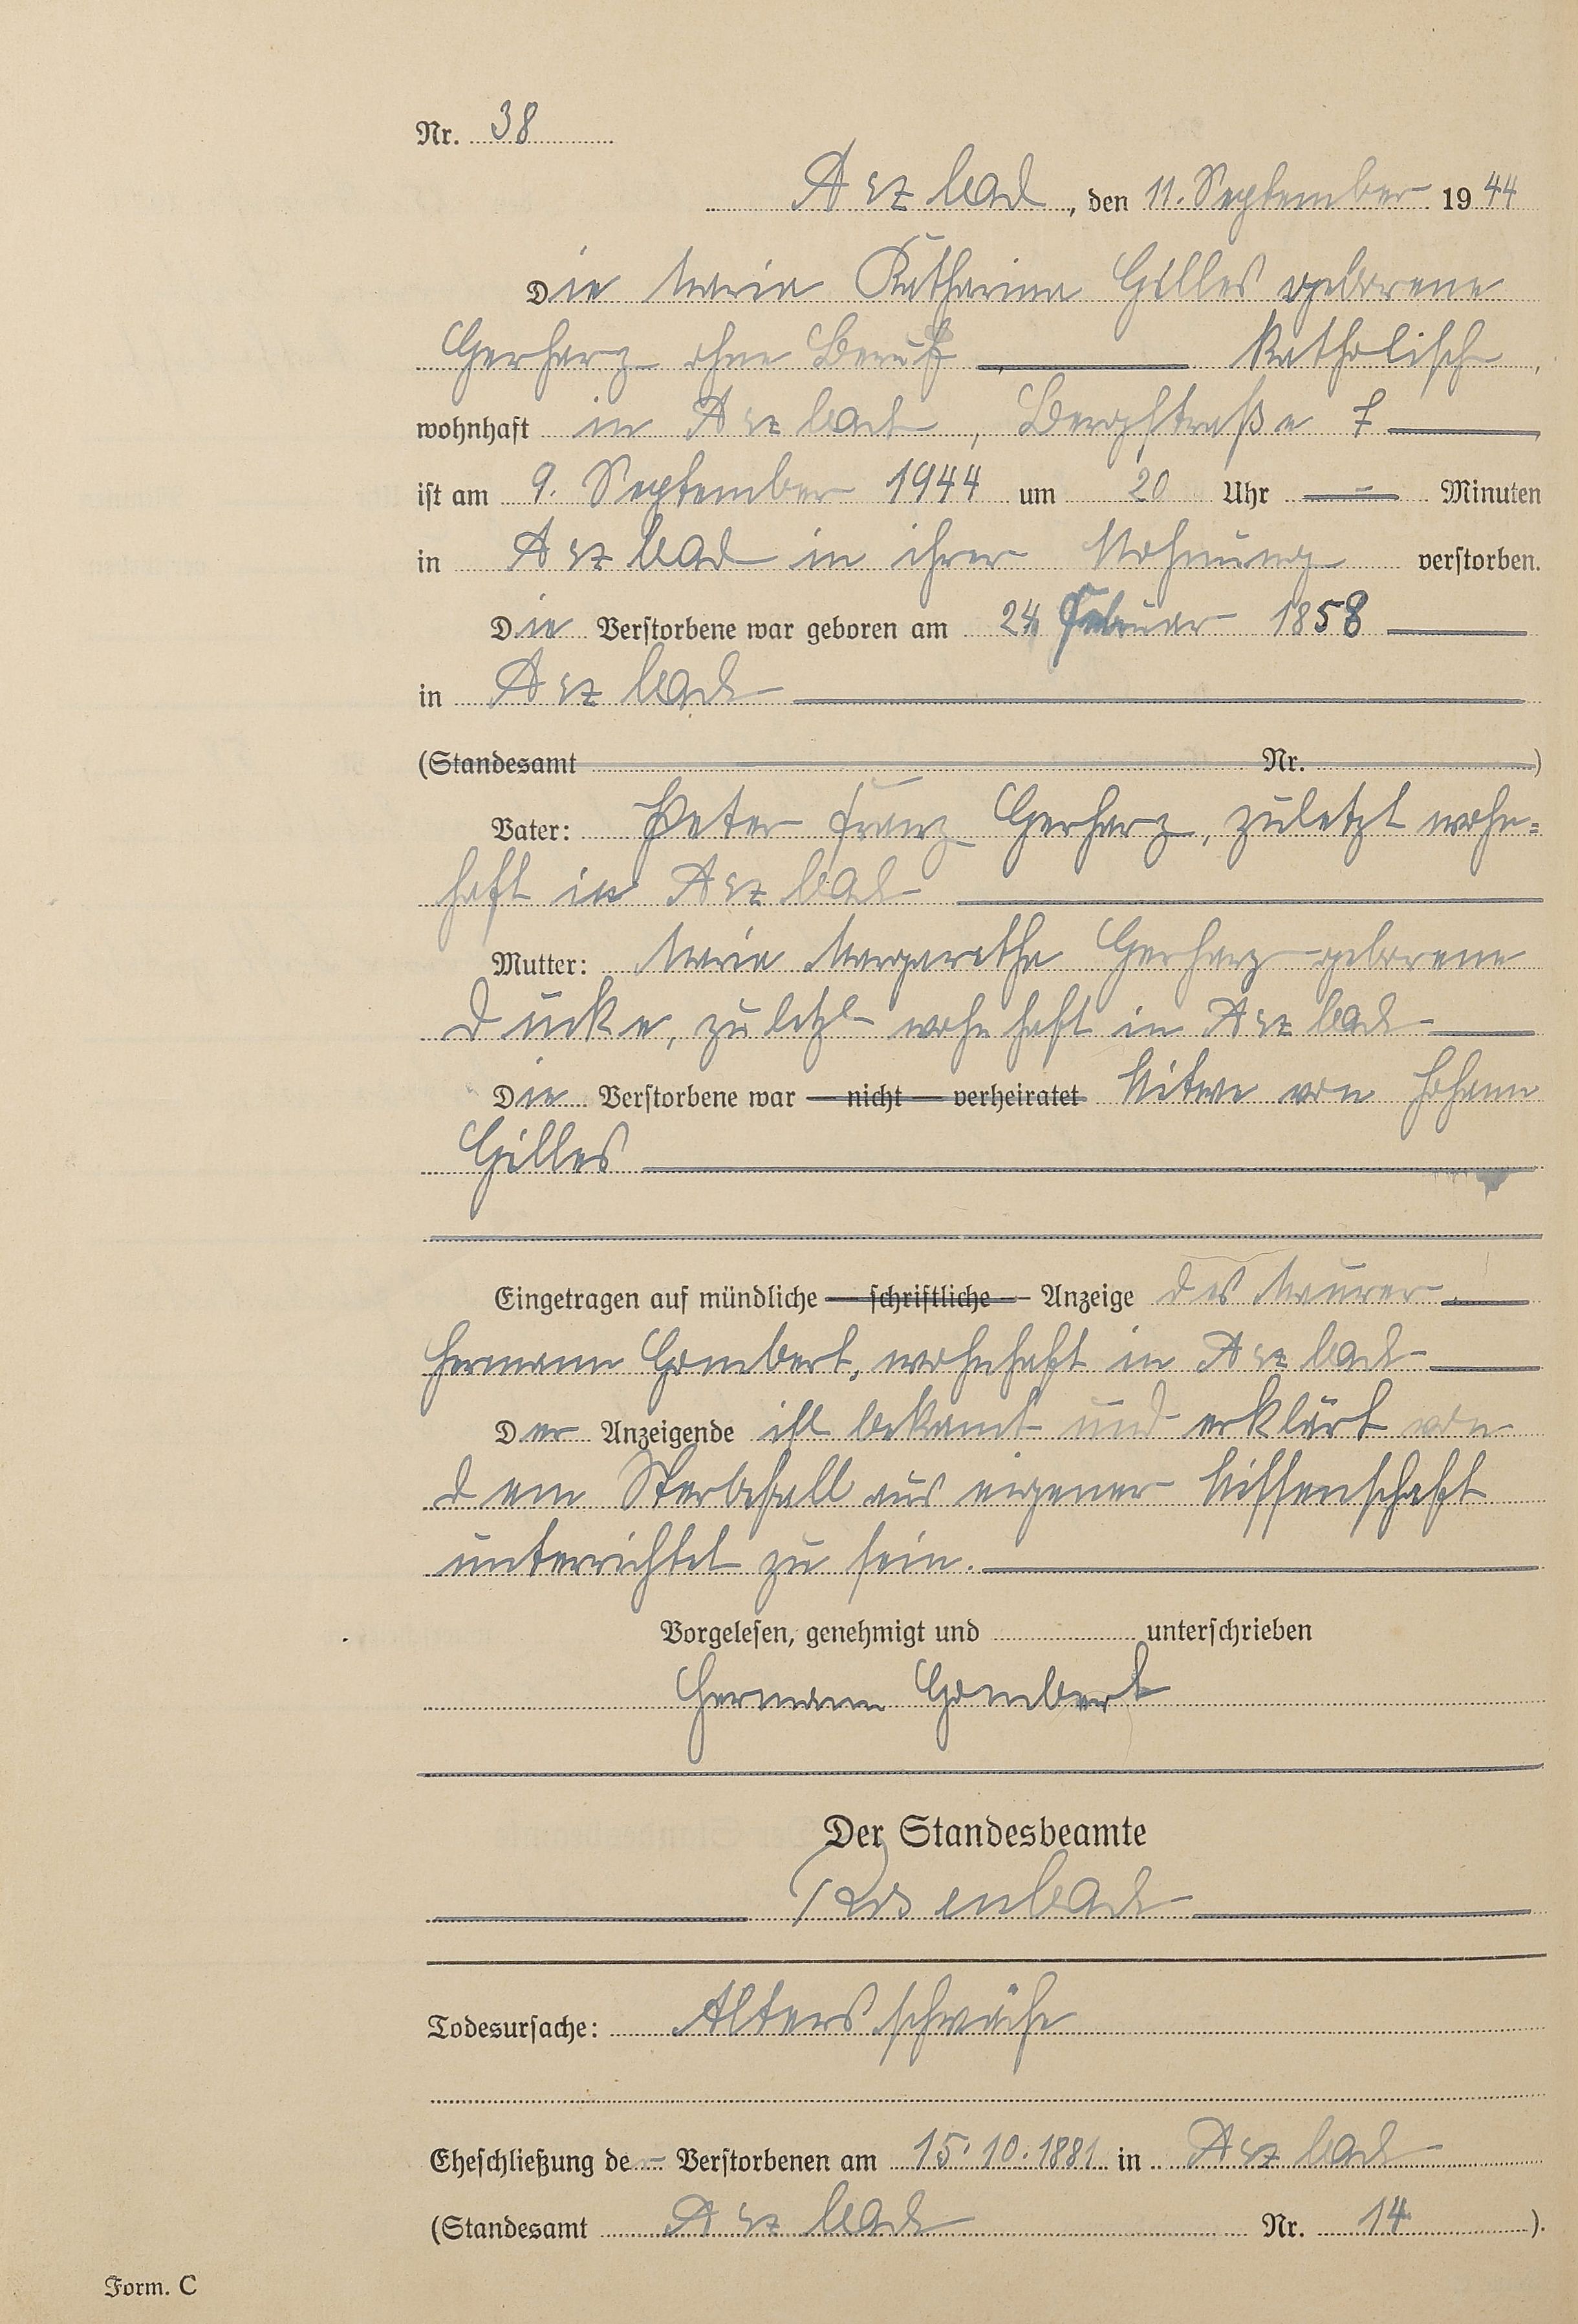 Nr. 38
Arzbach, den 11. September 1944
Die Maria Katharina Gilles geborene
Gerharz ohne Beruf, katholisch,
wohnhaft in Arzbach, Bergstraße 7
ist am 9. September 1944 um 20 Uhr — Minuten
in Arzbach in ihrer Wohnung verstorben.
Die Verstorbene war geboren am 24. Februar 1858
in Arzbach
(Standesamt Nr. )
Vater: Peter Franz Gerharz, zuletzt wohn=
haft in Arzbach
Mutter: Maria Margaretha Gerharz geborene
Ducke, zuletzt wohnhaft in Arzbach
Die Verstorbene war — nicht — verheiratet Witwe von Johann
Gilles
Eingetragen auf mündliche — schriftliche — Anzeige des Maurer
Hermann Gombert, wohnhaft in Arzbach
Der Anzeigende ist bekannt und erklärt von
dem Sterbefall aus eigener Wissenschaft
unterrichtet zu sein.
Vorgelesen, genehmigt und unterschrieben
Hermann Gombert
Der Standesbeamte
Rosenbach
Todesursache: Altersschwäche
Eheschließung der Verstorbenen am 15.10.1881 in Arzbach
(Standesamt Arzbach Nr. 14 ).
Form. C